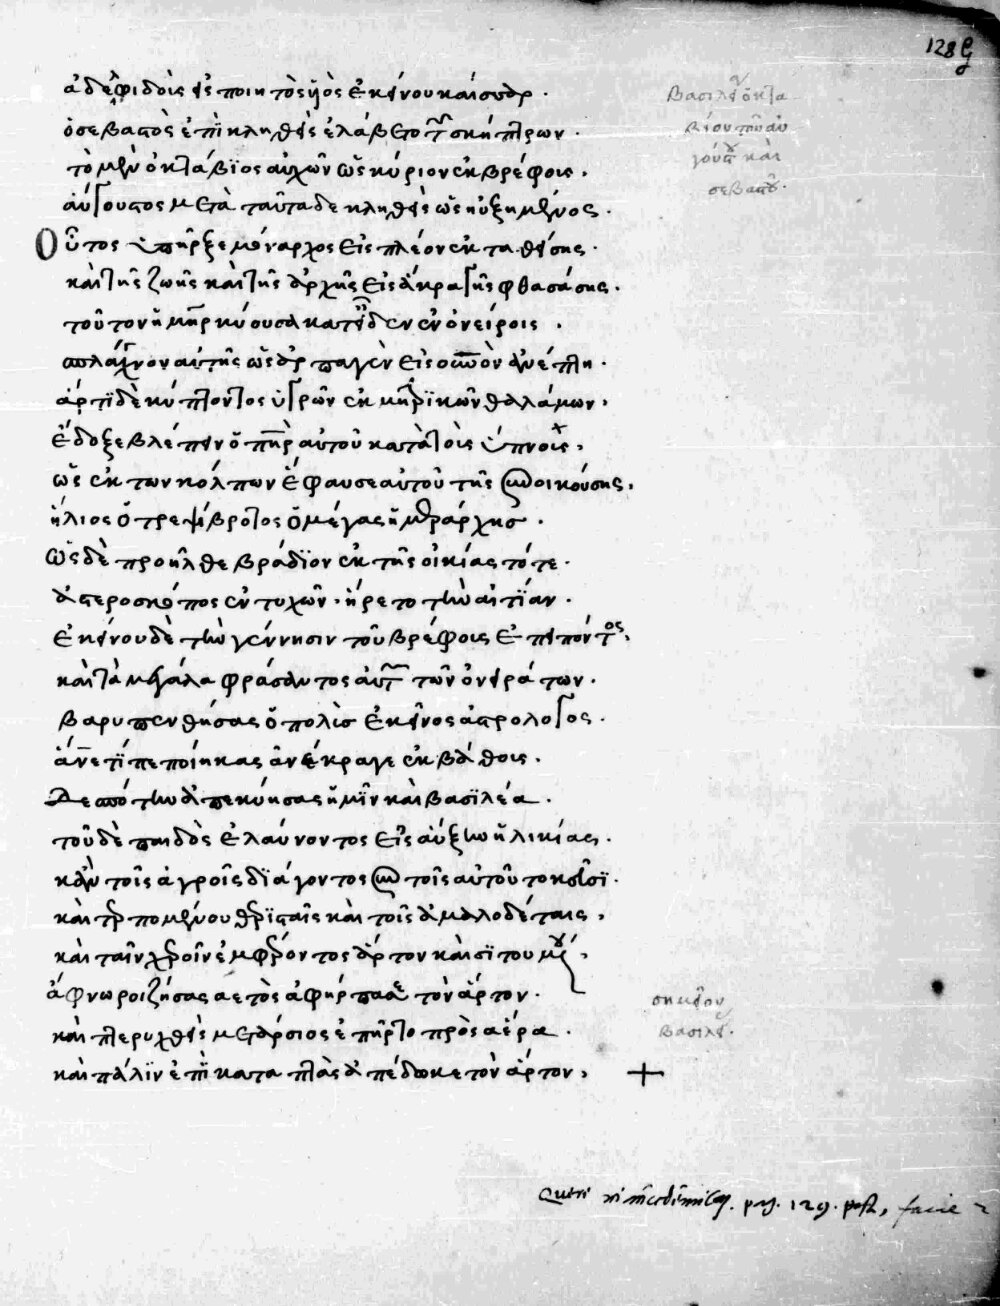 128
ἀδελφιδοῖς εἰς ποιητὸς υἱὸς ἐκείνου καίσαρ.
ὁ σεβαστὸς ἐπικληθεὶς ἐλάβετο τῶν σκήπτρων.
τὸ μὲν ὀκτάβϊος αὐχῶν ὡς κύριον ἐκ βρέφοις.
αὔγουστος μετὰ ταῦτα δε κληθεὶς ὡς ηὐξημένος.
Οὗτος ὑπῆρξε μόναρχος εἰς πλέον ἐκταθείσης.
καὶ τῆς ζωῆς καὶ τῆς ἀρχῆς εἰς ἄκρα γῆς φθασάσης.
τοῦτον ἡ μήτηρ κύουσα κατεῖδεν ἐν ὀνείροις.
σπλάγχνον αὐτῆς ὡς ἁρπαγὲν εἰς οὐρανὸν ἀνέπτη.
ἄρτϊ δὲ κύπτοντος ὑγρῶν ἐκ μητρϊκῶν θαλάμων.
ἔδοξε βλέπειν ὁ πατὴρ αὐτοῦ κατὰ τοὺς ὕπνοις.
ὡς ἐκ των κόλπων ἔφαυσε αὐτοῦ τῆς συνοικούσης.
ἥλιος ὁ τρεψίβροτος ὁ μέγας ἡμεράρχης.
ὡς δὲ προῆλθε βράδϊον ἐκ τῆς οἰκίας τότε.
ἀστεροσκόπος ἐντυχῶν. ἤρετο τὴν αἰτΐαν.
ἐκείνου δὲ τὴν γέννησιν τοῦ βρέφοις ἐπειπόντος.
καὶ τὰ μεγάλα φράσαντος αὐτῶ τῶν ὀνειράτων.
βαρυστενθήσας ὁ πολὺς ἐκεῖνος ἀστρολόγος.
ἄνερ τΐ πεποίηκας ἀνέκραγε ἐκ βάθοις.
Δεσπότην ἀπεκύησας ἡμῖν καὶ βασϊλέα.
τοῦ δὲ παιδὸς ἐλαύνοντος εἰς αὔξην ἡλικίας.
κἀν τοῖς ἀγροῖς δϊάγοντος σὺν τοῖς αὐτοῦ τοκεῦσϊ.
καὶ τερπομένου θερϊσταῖς καὶ τοῖς ἀμαλοδέταις.
καὶ ταῖν χεροῖν ἐμφέροντος ἄρτον καὶ σϊτου μέρος.
ἄφνω ροιζήσας αετὸς ἀφήρπασε τὸν ἄρτον.
καὶ πτερυχθεὶς μετάρσιος ἐπῆρτο πρὸς αέρα.
καὶ πάλϊν ἐπϊκαταπτὰς ἀπέδωκε τὸν ἄρτον. +
βασιλεία ὀκτα
βίου τοῦ αὐ
γούστου καὶ
σεβαστοῦ.
σημεῖον
βασιλεί.
pag. 129. post,